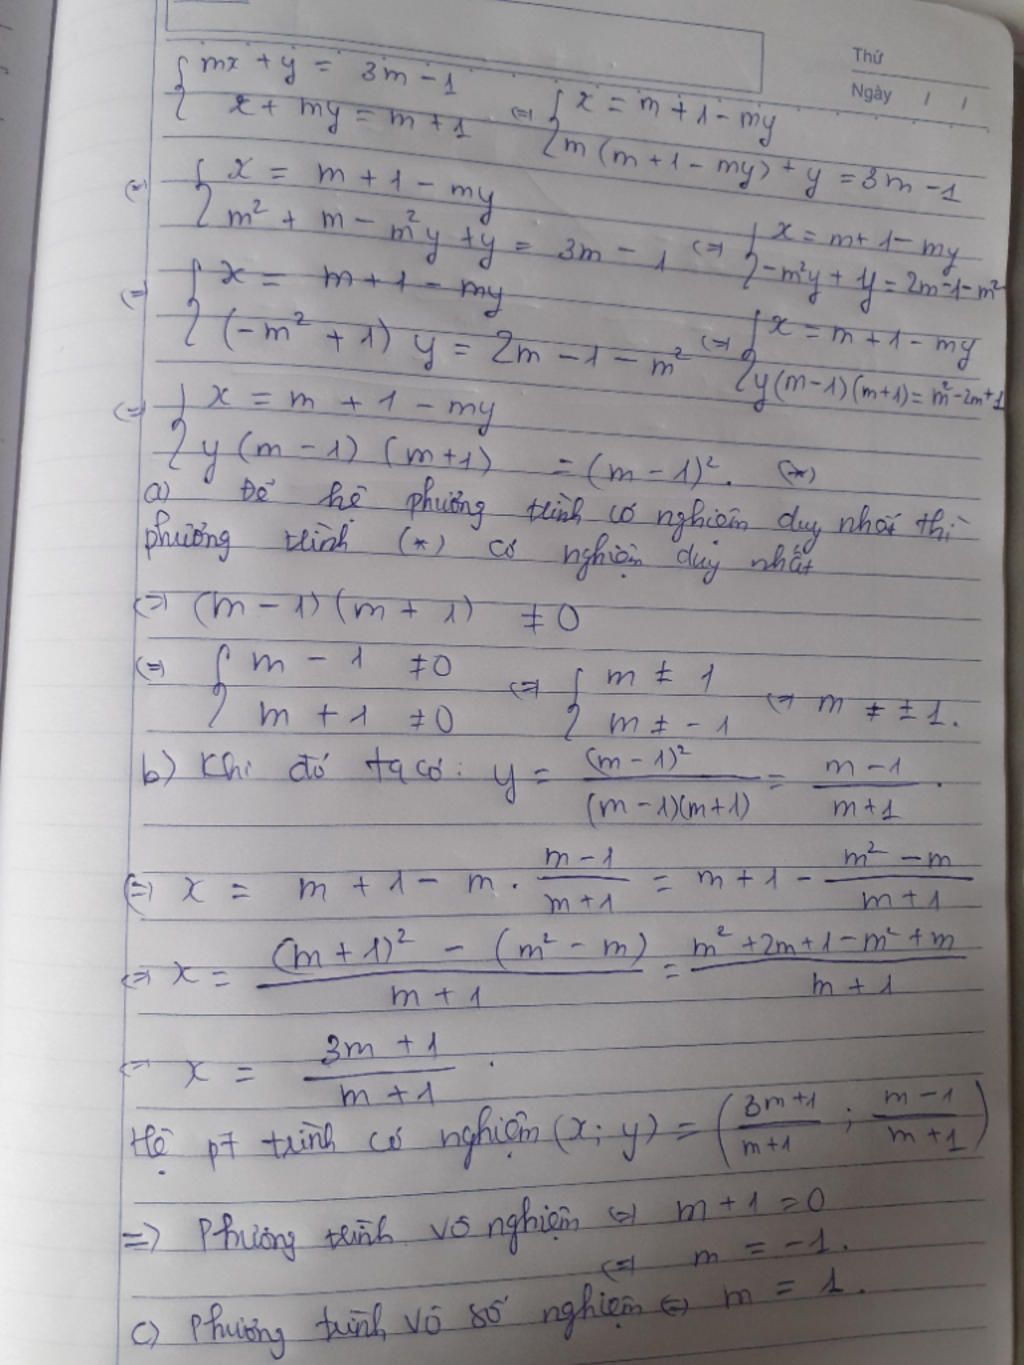 Thứ
Ngày / /
{ mx + y = 3m - 1
x + my = m + 1 ⇔ { x = m + 1 - my
m(m + 1 - my) + y = 3m - 1
⇔ { x = m + 1 - my
m² + m - m²y + y = 3m - 1 ⇔ { x = m + 1 - my
-m²y + 1y = 2m - 1 - m²
⇔ { x = m + 1 - my
(-m² + 1) y = 2m - 1 - m² ⇔ { x = m + 1 - my
y(m - 1)(m + 1) = m² - 2m + 1
⇔ { x = m + 1 - my
y (m - 1) (m + 1) = (m - 1)². (*)
a) Để hệ phương trình có nghiệm duy nhất thì
phương trình (*) có nghiệm duy nhất
⇔ (m - 1)(m + 1) ≠ 0
⇔ { m - 1 ≠ 0
m + 1 ≠ 0 ⇔ { m ≠ 1
m ≠ -1 ⇔ m ≠ ±1.
b) Khi đó ta có: y = (m - 1)² / (m - 1)(m + 1) = m - 1 / m + 1.
⇔ x = m + 1 - m . m - 1 / m + 1 = m + 1 - m² - m / m + 1
⇔ x = (m + 1)² - (m² - m) / m + 1 = m² + 2m + 1 - m² + m / m + 1
⇔ x = 3m + 1 / m + 1.
Hệ pt trình có nghiệm (x; y) = (3m + 1 / m + 1 ; m - 1 / m + 1)
=> Phương trình vô nghiệm ⇔ m + 1 = 0
⇔ m = -1.
c) Phương trình vô số nghiệm ⇔ m = 1.